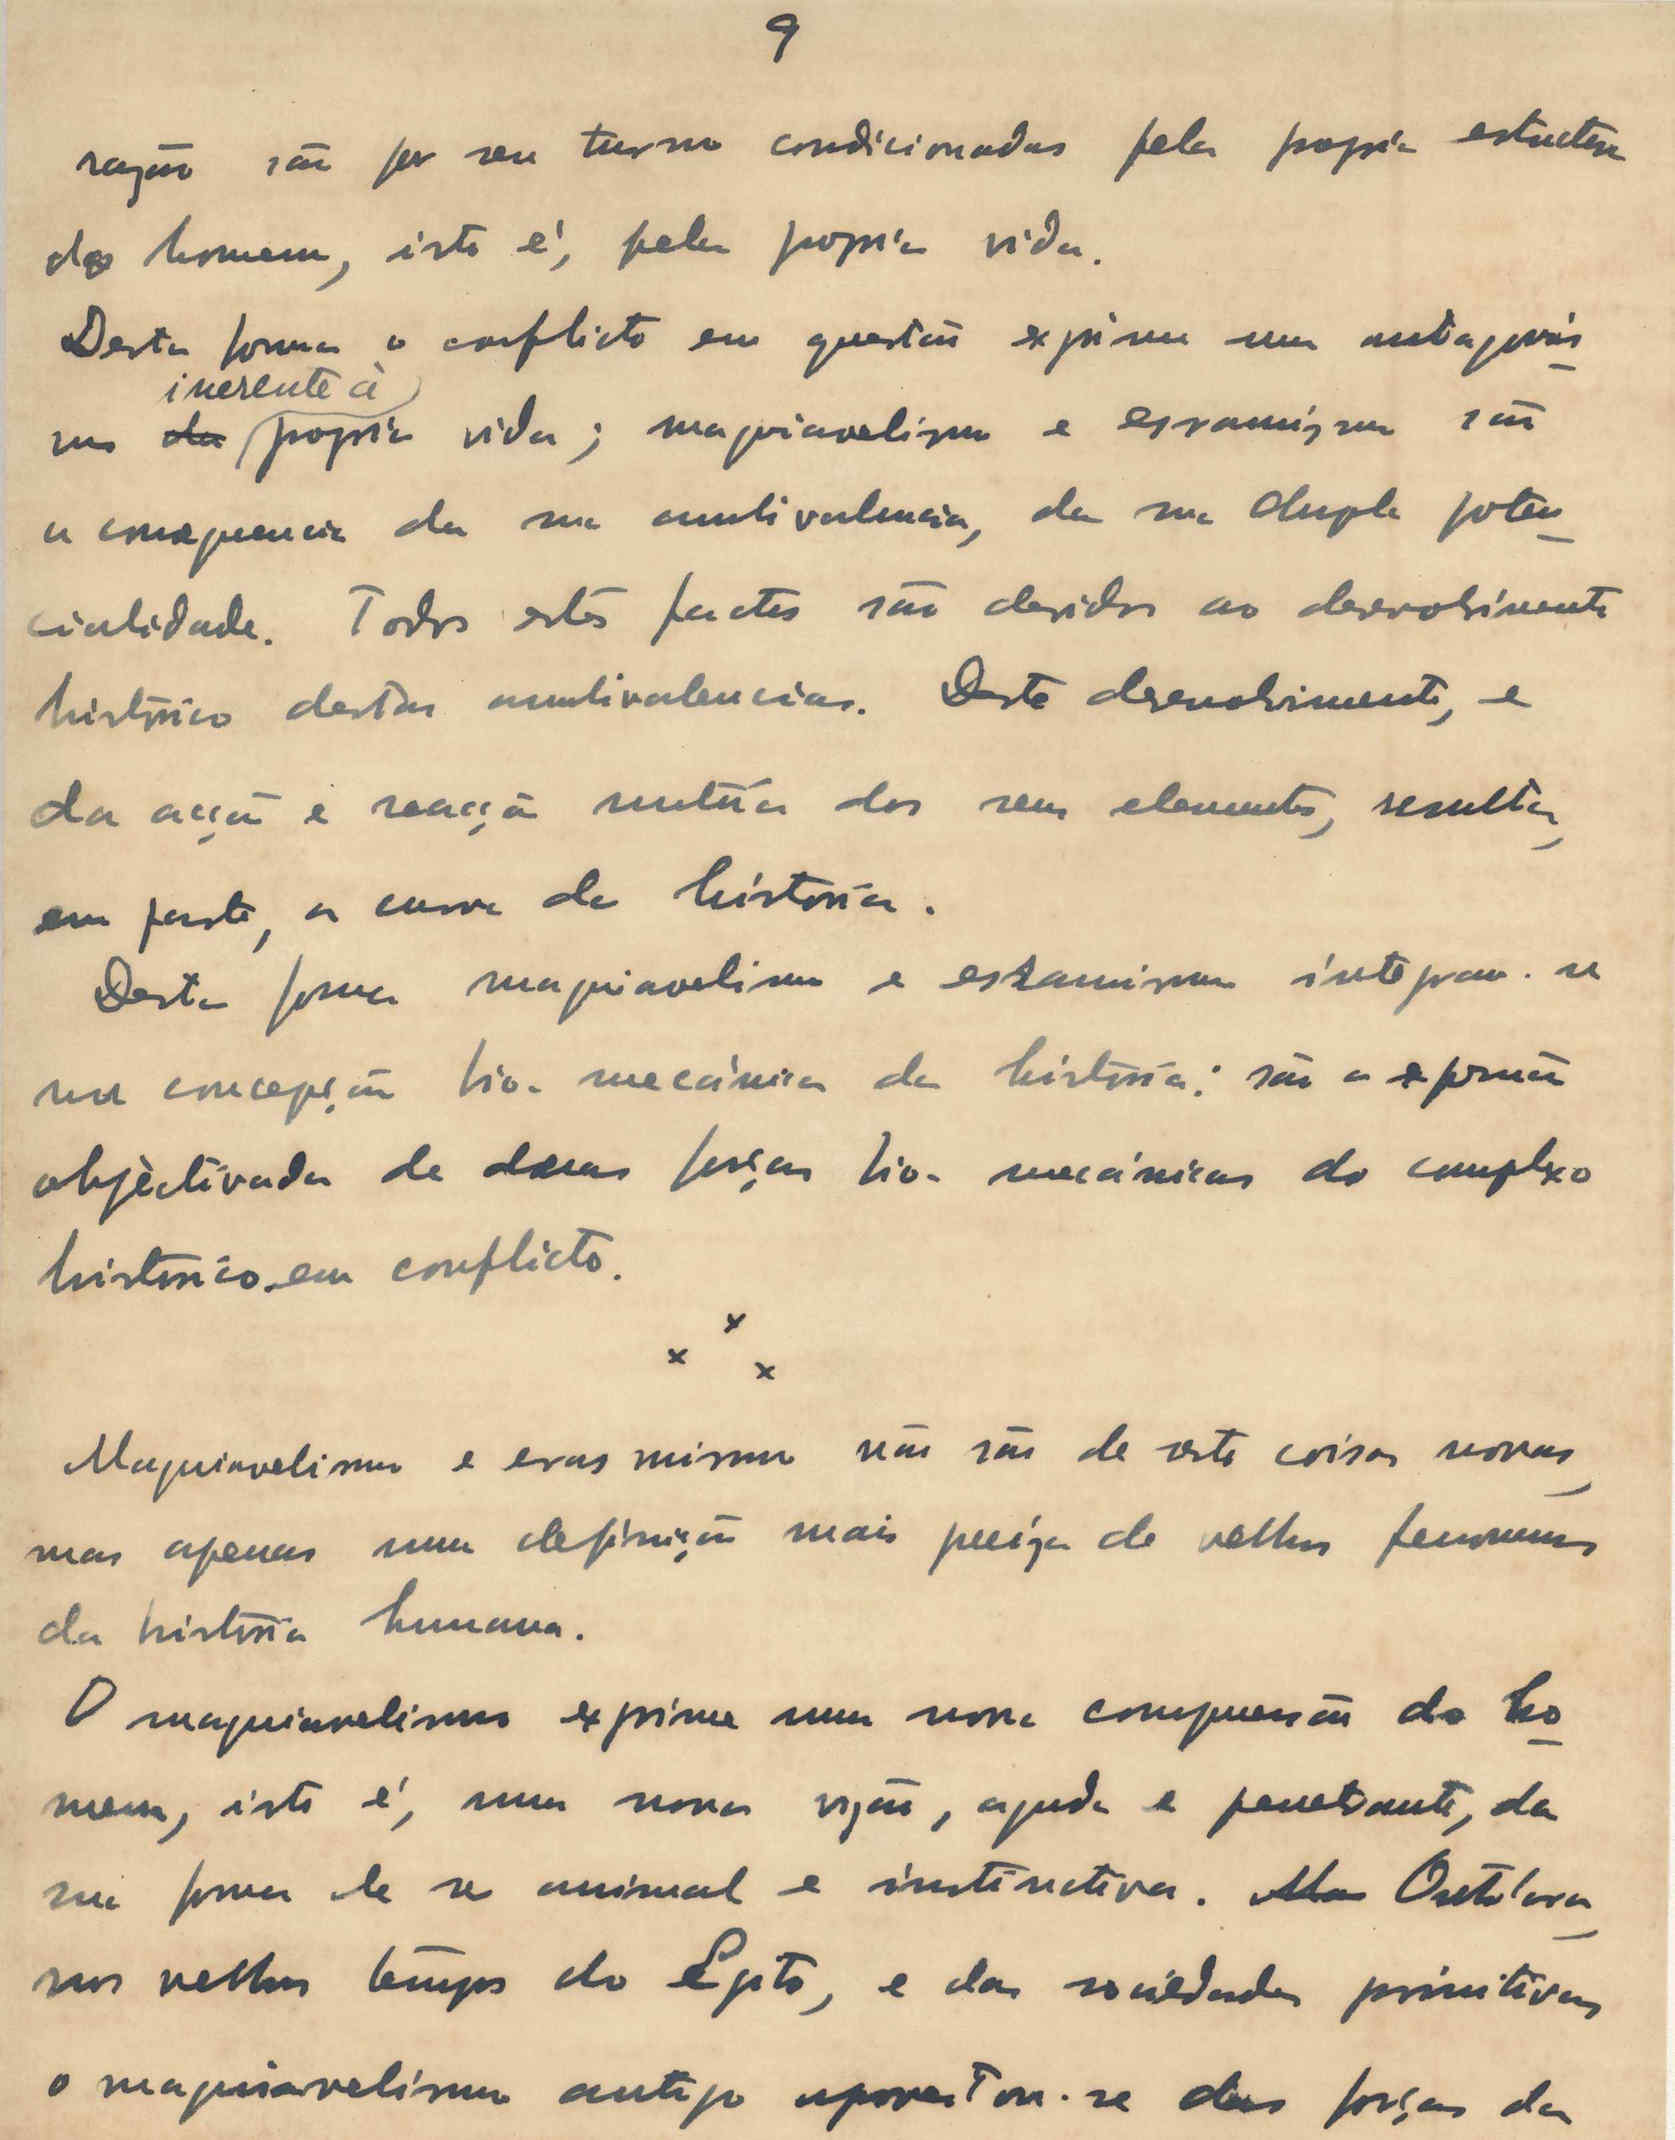 9
razão são por seu turno condicionadas pela propria estructura
do homem, isto é, pela propria vida.
Desta forma o conflicto em questão exprime um antagonis
inerente à
mo da propria vida; maquiavelismo e erasmismo são
a consequencia da sua ambivalencia, da sua dupla poten
cialidade. Todos estes factos são devidos ao desenvolvimento
histórico destas ambivalencias. Deste desenvolvimento, e
da acção e reacção mutúa dos seus elementos, resulta,
em parte, a curva da história.
Desta forma maquiavelismo e erasmismo integram-se
na concepção bio-mecánica da história: são a expressão
objectivada de duas forças bio-mecánicas do complexo
histórico em conflicto.
x
x x
Maquiavelismo e erasmismo não são de resto coisas novas,
mas apenas uma definição mais preciza de velhos fenomenos
da história humana.
O maquiavelismo exprime uma nova compreensão do ho
mem, isto é, uma nova vizão, aguda e penetrante, da
sua forma de ser animal e instinctiva. Mas Outróra,
nos velhos tempos do Egito, e das sociedades primitivas
o maquiavelismo antigo aproveitou-se das forças da